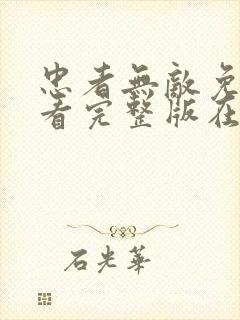 忠者無敵免
看完整版在
石光華